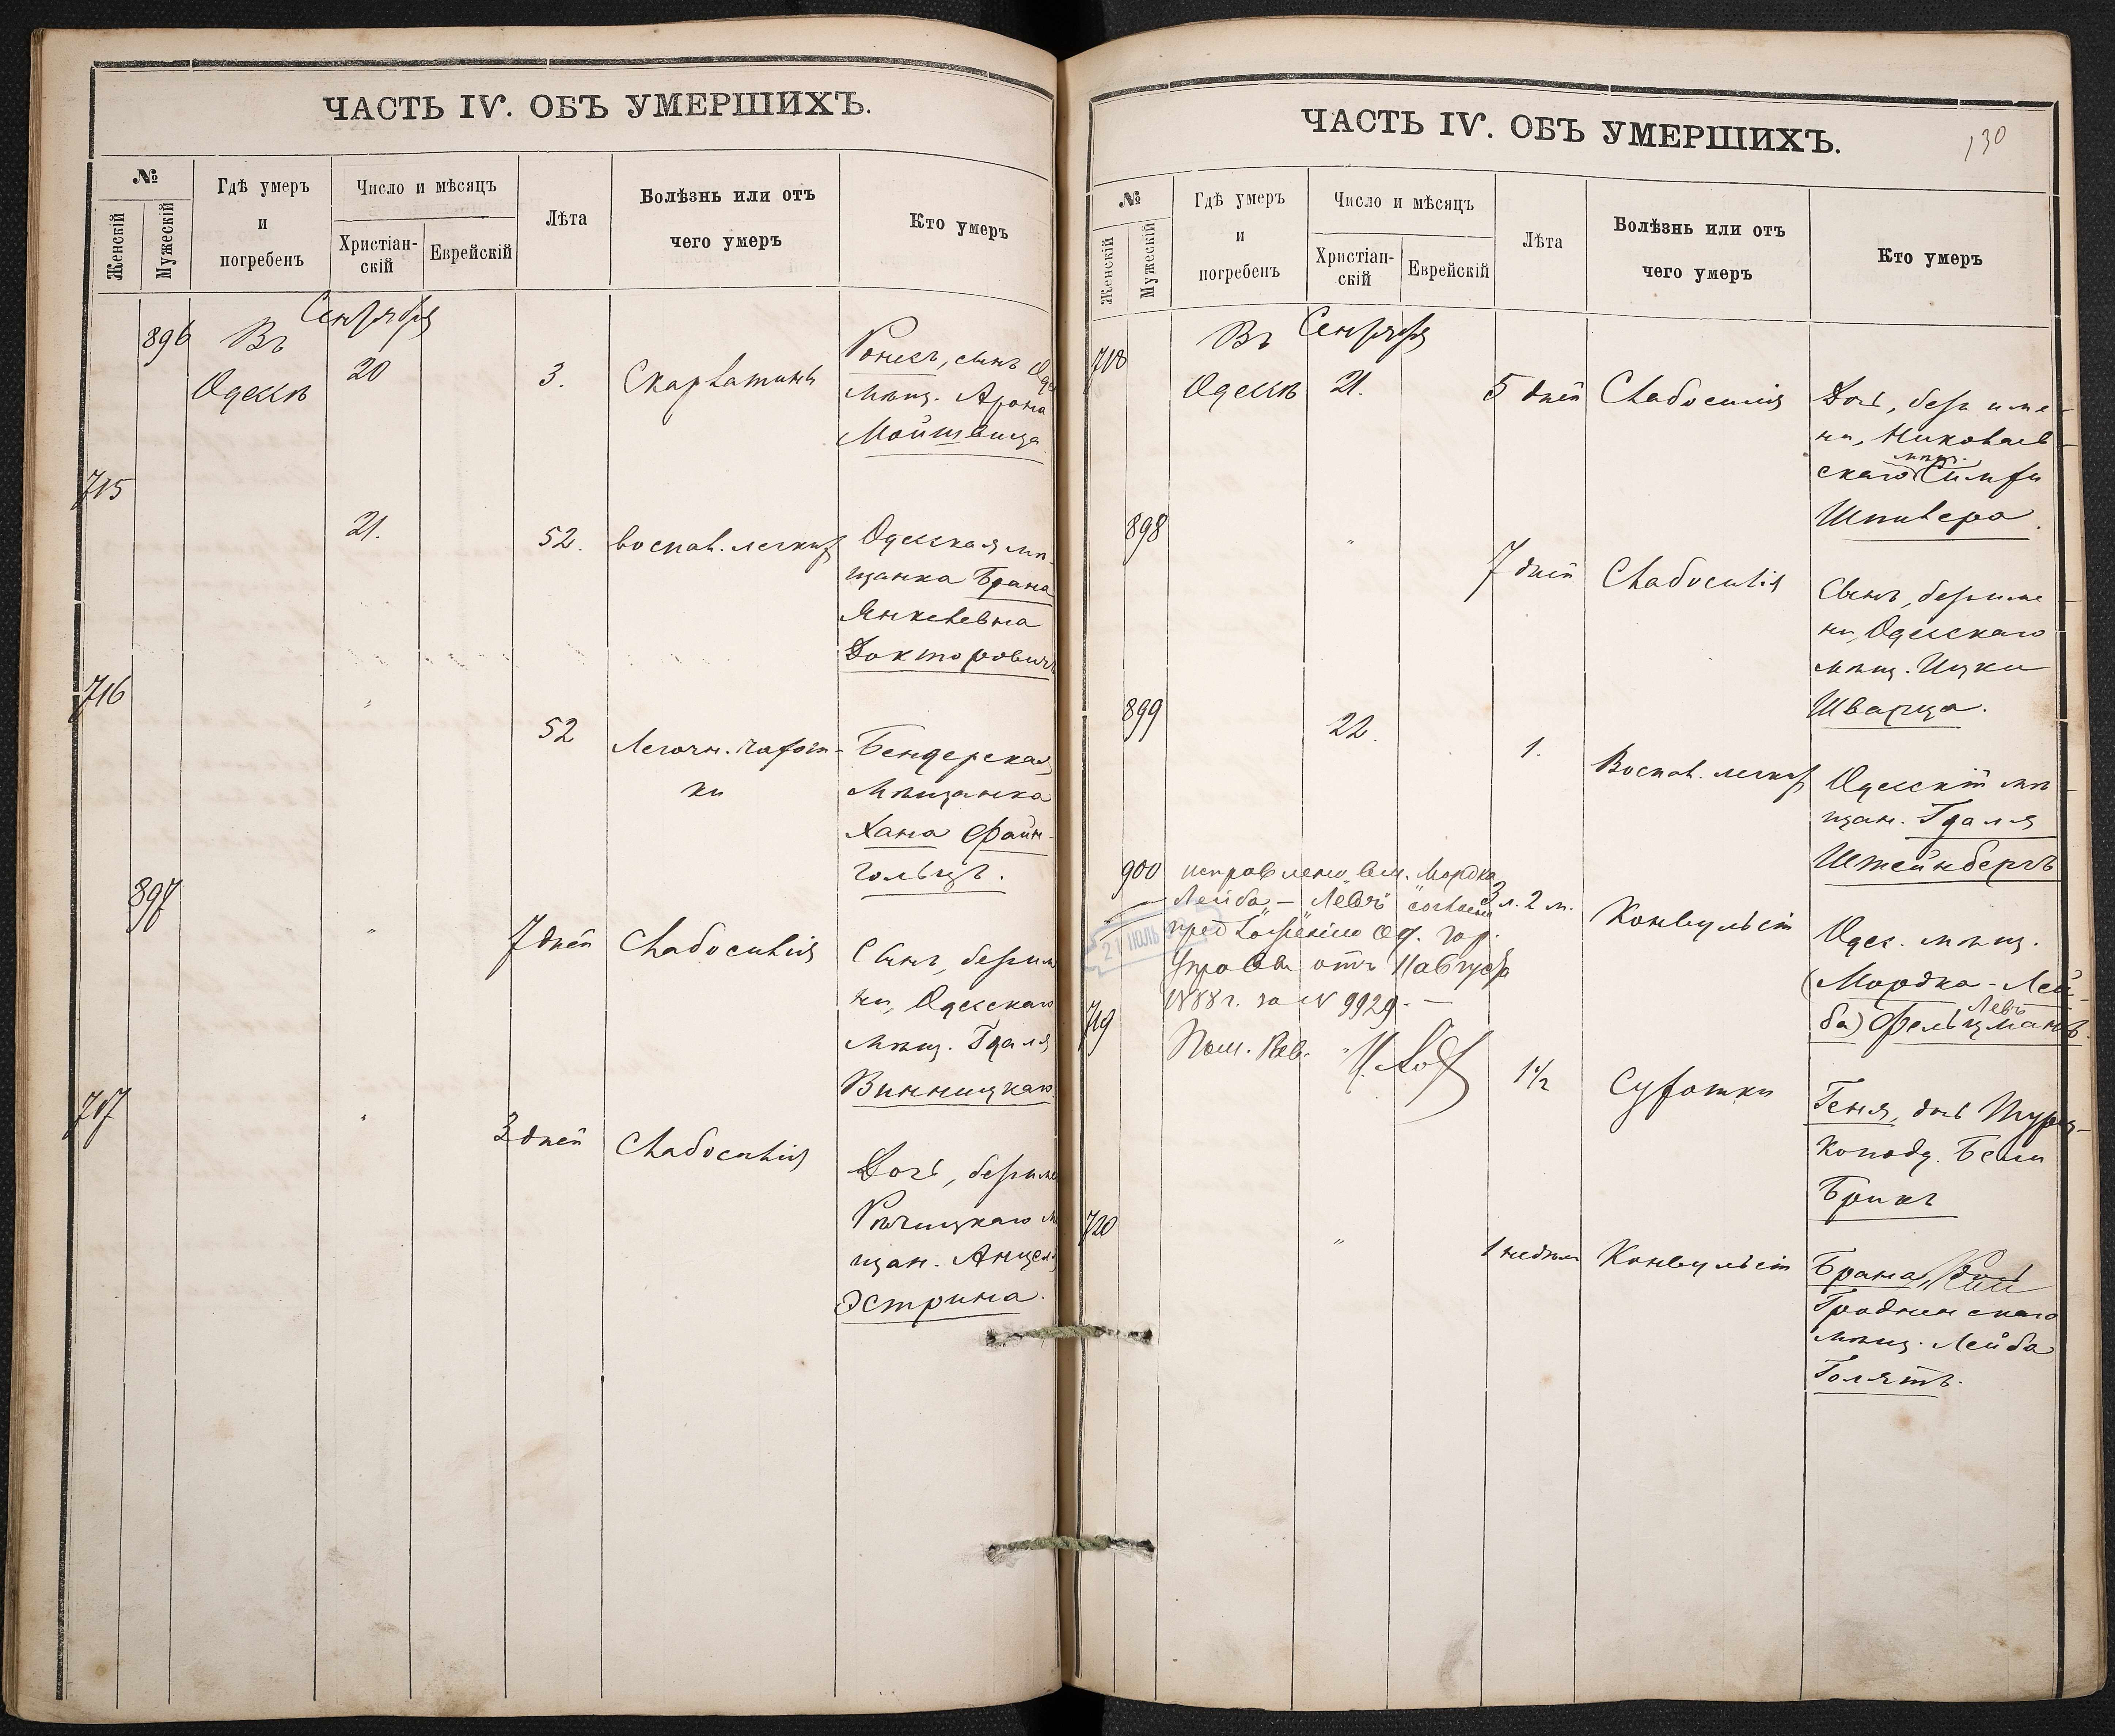 ЧАСТЬ IV. ОБЪ УМЕРШИХЪ.
№
Женскій
Мужескій
Гдѣ умеръ
и
погребенъ
Число и мѣсяцъ
Христіан-
скій
Еврейскій
Лѣта
Болѣзнь или отъ
чего умеръ
Кто умеръ
896 Въ Сентября
Одессѣ 20 3. Скарлатины
сынъ
мѣщ. Арона
715
21. 52. воспал. легкихъ Одесская мѣ-
щанка Брана
Янкелевна
Докторовичъ
716
" 52 Легочн. чахот-
ки
Бендерская
мѣщанка
Хана Файн-
гольцъ.
897
" 7 дней Слабосилія Сынъ, безъ име
ни, Одесскаго
мѣщ. Гдаля
Винницкаго
717
" 3 дней Слабосилія Дочь, безъ име
Рѣчицкаго мѣ
щан. Анцеля
Эстрина.
ЧАСТЬ IV. ОБЪ УМЕРШИХЪ.
130
№
Женскій
Мужескій
Гдѣ умеръ
и
погребенъ
Число и мѣсяцъ
Христіан-
скій
Еврейскій
Лѣта
Болѣзнь или отъ
чего умеръ
Кто умеръ
718 Въ Сентября
Одессѣ 21. 5 дней Слабосилія Дочь, безъ име-
ни, Николаев-
скаго мѣщ.
Шпилера.
898
" 7 дней Слабосилія Сынъ, безъ име
ни, Одесскаго
мѣщ. Ицки
Шварца.
899
22. 1. Воспал. легкихъ Одесскій мѣ-
щан. Гдаля
Штейнбергъ
900 исправлено вм. Мордка
Лейба - "Левъ" согласно
предложенію Од. Гор.
Управы отъ 11 августа
1888 г. за N 9929. -
Пом. Рав.
21 ІЮЛЬ
3 л. 2 м. Конвульсіи Одес. мѣщ.
(Мордка-Лей-
ба) Левъ Фельцманъ.
719
" 1 1/2 Сухотки Геня, дочь Турец-
коподд. Бени
Брикъ
720
" 1 недѣли Конвульсіи Брана, дочь
Гродненскаго
мѣщ. Лейба
Голятъ.